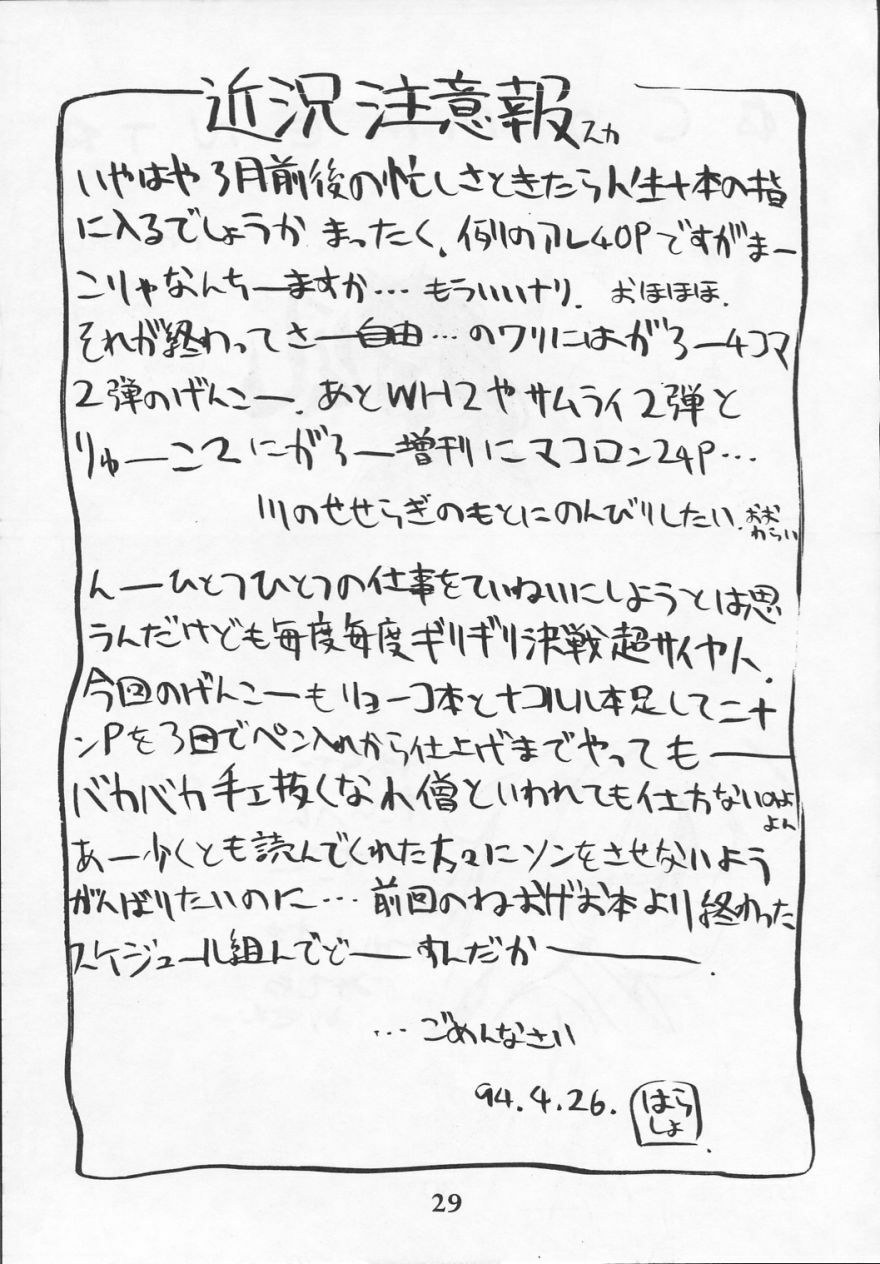 近況注意報スカ
いやはや3月前後の忙しさときたら人生十本の指
に入るでしょうか まったく、例のアレ40Pですがまー
こりゃなんちーますか… もういいナリ. おほほほ.
それが終わってさー自由…のワリにはがろー4コマ
2弾のげんこー. あとWH2やサムライ2弾と
りゅーこ2にがろー増刊にマコロン24P…
川のせせらぎのもとにのんびりしたい. おお
わらい
んーひとつひとつの仕事をていねいにしようとは思
うんだけども毎度毎度ギリギリ決戦超サイヤ人.
今回のげんこーもリョーコ本とナコルル本足して二十
ンPを3日でペン入れから仕上げまでやってもーー
バカバカ手エ抜くなれ僧といわれても仕方ないのよ
よん
あー少くとも読んでくれた方々にソンをさせないよう
がんばりたいのに… 前回のねおげお本より終わった
スケジュール組んでどーーすんだかーーー.
…ごめんなさい
94.4.26.
はら
しょ
29